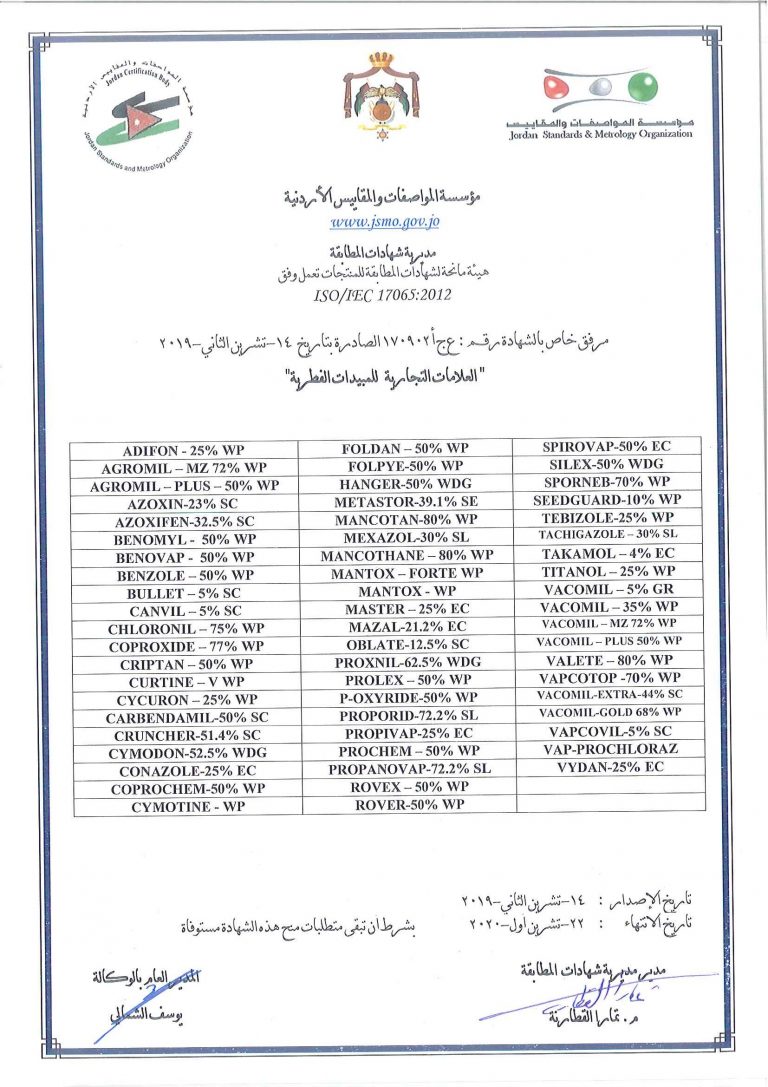 مؤسسة المواصفات والمقاييس الأردنية
Jordan Certification Body
Jordan Standards and Metrology Organization
مؤسسة المواصفات والمقاييس
Jordan Standards & Metrology Organization
مؤسسة المواصفات والمقاييس الأردنية
www.jsmo.gov.jo
مديرية شهادات المطابقة
هيئة مانحة لشهادات المطابقة للمنتجات تعمل وفق
ISO/IEC 17065:2012
مرفق خاص بالشهادة رقم : ع ج أ ١٧٠٩٠٢ الصادرة بتاريخ ١٤-تشرين الثاني-٢٠١٩
"العلامات التجارية للمبيدات الفطرية"
ADIFON - 25% WP FOLDAN – 50% WP SPIROVAP-50% EC
AGROMIL – MZ 72% WP FOLPYE-50% WP SILEX-50% WDG
AGROMIL – PLUS – 50% WP HANGER-50% WDG SPORNEB-70% WP
AZOXIN-23% SC METASTOR-39.1% SE SEEDGUARD-10% WP
AZOXIFEN-32.5% SC MANCOTAN-80% WP TEBIZOLE-25% WP
BENOMYL - 50% WP MEXAZOL-30% SL TACHIGAZOLE – 30% SL
BENOVAP - 50% WP MANCOTHANE – 80% WP TAKAMOL – 4% EC
BENZOLE – 50% WP MANTOX – FORTE WP TITANOL – 25% WP
BULLET – 5% SC MANTOX - WP VACOMIL – 5% GR
CANVIL – 5% SC MASTER – 25% EC VACOMIL – 35% WP
CHLORONIL – 75% WP MAZAL-21.2% EC VACOMIL – MZ 72% WP
COPROXIDE – 77% WP OBLATE-12.5% SC VACOMIL – PLUS 50% WP
CRIPTAN – 50% WP PROXNIL-62.5% WDG VALETE – 80% WP
CURTINE – V WP PROLEX – 50% WP VAPCOTOP -70% WP
CYCURON – 25% WP P-OXYRIDE-50% WP VACOMIL-EXTRA-44% SC
CARBENDAMIL-50% SC PROPORID-72.2% SL VACOMIL-GOLD 68% WP
CRUNCHER-51.4% SC PROPIVAP-25% EC VAPCOVIL-5% SC
CYMODON-52.5% WDG PROCHEM – 50% WP VAP-PROCHLORAZ
CONAZOLE-25% EC PROPANOVAP-72.2% SL VYDAN-25% EC
COPROCHEM-50% WP ROVEX – 50% WP
CYMOTINE - WP ROVER-50% WP
تاريخ الإصدار : ١٤-تشرين الثاني-٢٠١٩
تاريخ الانتهاء : ٢٢-تشرين اول-٢٠٢٠ بشرط ان تبقى متطلبات منح هذه الشهادة مستوفاة
مدير مديرية شهادات المطابقة المدير العام بالوكالة
م. تمارا القطارنة يوسف الشمالي